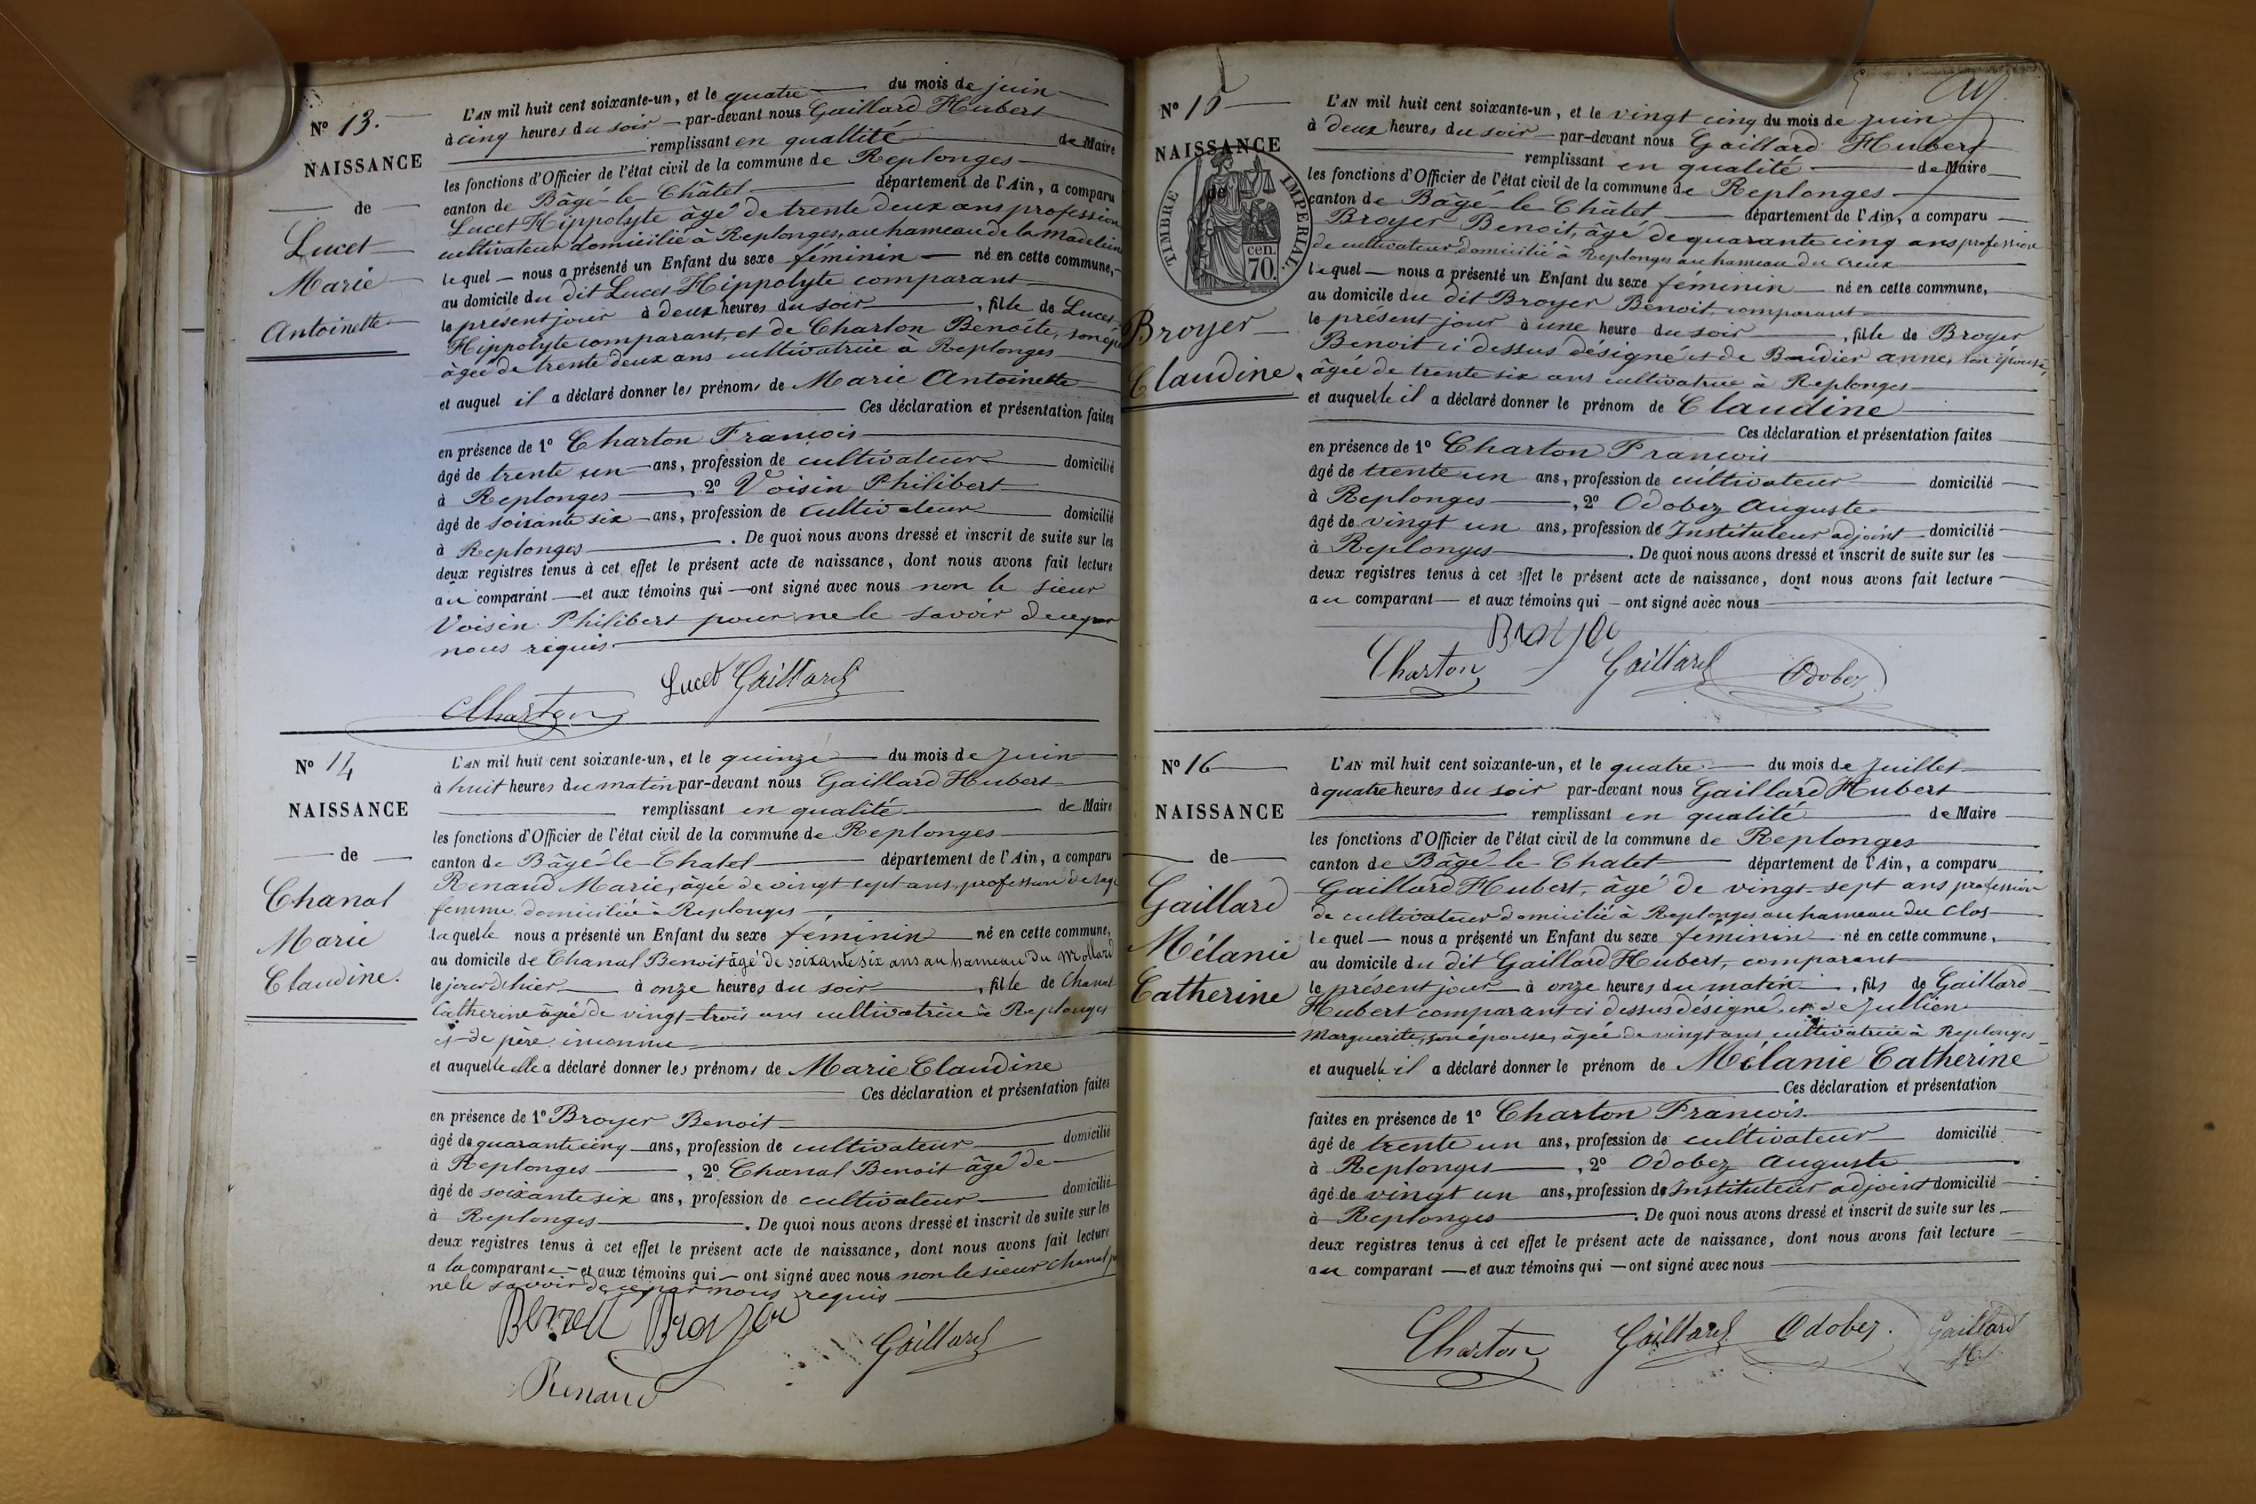 N° 13.
NAISSANCE
de
Lucet
Marie
Antoinette
L'AN mil huit cent soixante-un, et le quatre du mois de juin
à cinq heures du soir par-devant nous Gaillard Hubert
remplissant en qualtité de Maire
les fonctions d'Officier de l'état civil de la commune de Replonges
canton de Bâgé-le-Châtel département de l'Ain, a comparu
Lucet Hippolyte âgé de trente deux ans profession
cultivateur domicilié à Replonges, au hameau de la Madeleine
lequel nous a présenté un Enfant du sexe féminin né en cette commune,
au domicile du dit Lucet Hippolyte comparant
le présent jour à deux heures du soir, fille de Lucet
Hippolyte comparant, et de Charton Benoite, son
âgée de trente deux ans cultivatrice à Replonges
et auquel il a déclaré donner les prénoms de Marie Antoinette
Ces déclaration et présentation faites
en présence de 1° Charton François
âgé de trente un ans, profession de cultivateur domicilié
à Replonges, 2° Voisin Philibert
âgé de soixante six ans, profession de cultivateur domicilié
à Replonges. De quoi nous avons dressé et inscrit de suite sur les
deux registres tenus à cet effet le présent acte de naissance, dont nous avons fait lecture
au comparant et aux témoins qui ont signé avec nous non le sieur
Voisin Philibert pour ne le savoir de ce par
nous requis
Lucet Gaillard
Charton
N° 14
NAISSANCE
de
Chanal
Marie
Claudine.
L'AN mil huit cent soixante-un, et le quinze du mois de Juin
à huit heures du matin par-devant nous Gaillard Hubert
remplissant en qualité de Maire
les fonctions d'Officier de l'état civil de la commune de Replonges
canton de Bâgé-le-Chatel département de l'Ain, a comparu
Renaud Marie, âgée de vingt-sept ans, profession de sage
femme domiciliée à Replonges
laquelle nous a présenté un Enfant du sexe féminin né en cette commune,
au domicile de Chanal Benoit âgé de soixante six ans au hameau du Mollard
le jour d'hier à onze heures du soir, fille de Chanal
Catherine âgée de vingt-trois ans cultivatrice à Replonges
et de père inconnu
et auquelle elle a déclaré donner les prénoms de Marie Claudine
Ces déclaration et présentation faites
en présence de 1° Broyer Benoit
âgé de quarante cinq ans, profession de cultivateur domicilié
à Replonges, 2° Chanal Benoit âgé de
âgé de soixante six ans, profession de cultivateur domicilié
à Replonges. De quoi nous avons dressé et inscrit de suite sur les
deux registres tenus à cet effet le présent acte de naissance, dont nous avons fait lecture
a la comparante et aux témoins qui ont signé avec nous non le sieur Chanal
ne le savoir de ce par nous requis
Broyer
Gaillard
Renaud
N° 15
NAISSANCE
de
TIMBRE IMPERIAL
cen.
70.
Broyer
Claudine.
L'AN mil huit cent soixante-un, et le vingt cinq du mois de juin
à deux heures du soir par-devant nous Gaillard Hubert
remplissant en qualité de Maire
les fonctions d'Officier de l'état civil de la commune de Replonges
canton de Bâgé-le-Châtel département de l'Ain, a comparu
Broyer Benoit, âgé de quarante cinq ans profession
de cultivateur domicilié à Replonges au hameau du creux
lequel nous a présenté un Enfant du sexe féminin né en cette commune,
au domicile du dit Broyer Benoit, comparant
le présent jour à une heure du soir, fille de Broyer
Benoit ci dessus désigné et de anne, son épouse,
âgée de trente six ans cultivatrice à Replonges
et auquelle il a déclaré donner le prénom de Claudine
Ces déclaration et présentation faites
en présence de 1° Charton François
âgé de trente un ans, profession de cultivateur domicilié
à Replonges, 2° Odobez Auguste
âgé de vingt un ans, profession de Instituteur adjoint domicilié
à Replonges. De quoi nous avons dressé et inscrit de suite sur les
deux registres tenus à cet effet le présent acte de naissance, dont nous avons fait lecture
au comparant et aux témoins qui ont signé avec nous
Broyer
Charton Gaillard Odobez
N° 16
NAISSANCE
de
Gaillard
Mélanie
Catherine
L'AN mil huit cent soixante-un, et le quatre du mois de Juillet
à quatre heures du soir par-devant nous Gaillard Hubert
remplissant en qualité de Maire
les fonctions d'Officier de l'état civil de la commune de Replonges
canton de Bâgé-le-Chatel département de l'Ain, a comparu
Gaillard Hubert, âgé de vingt-sept ans profession
de cultivateur domicilié à Replonges au hameau du Clos
lequel nous a présenté un Enfant du sexe féminin né en cette commune,
au domicile du dit Gaillard Hubert, comparant
le présent jour à onze heures du matin, fils de Gaillard
Hubert comparant ci dessus désigné, et de Jullien
Marguerite, son épouse, âgée de vingt ans cultivatrice à Replonges
et auquelle il a déclaré donner le prénom de Mélanie Catherine
Ces déclaration et présentation
faites en présence de 1° Charton François.
âgé de trente un ans, profession de cultivateur domicilié
à Replonges, 2° Odobez Auguste
âgé de vingt un ans, profession de Instituteur adjoint domicilié
à Replonges. De quoi nous avons dressé et inscrit de suite sur les
deux registres tenus à cet effet le présent acte de naissance, dont nous avons fait lecture
au comparant et aux témoins qui ont signé avec nous
Charton Gaillard Odobez. Gaillard
H